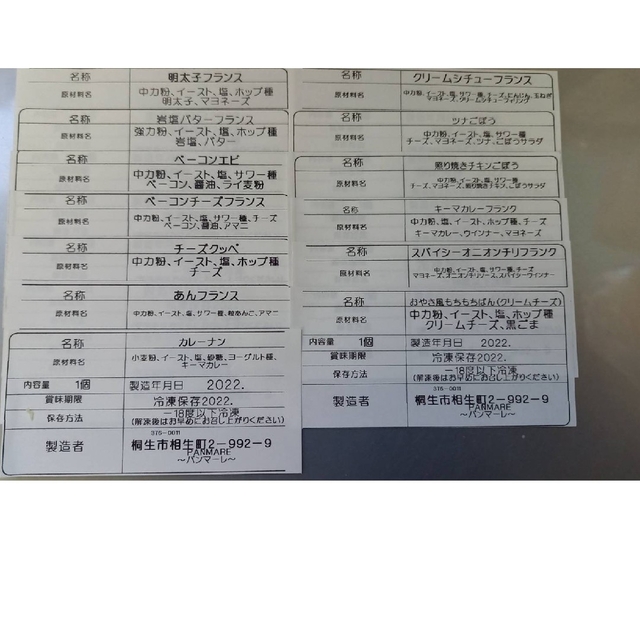 名称 明太子フランス
原材料名 中力粉、イースト、塩、ホップ種
明太子、マヨネーズ
名称 岩塩バターフランス
原材料名 強力粉、イースト、塩、ホップ種
岩塩、バター
名称 ベーコンエピ
原材料名 中力粉、イースト、塩、サワー種
ベーコン、醤油、ライ麦粉
名称 ベーコンチーズフランス
原材料名 中力粉、イースト、塩、サワー種、チーズ
ベーコン、醤油、アマニ
名称 チーズクッペ
原材料名 中力粉、イースト、塩、ホップ種
チーズ
名称 あんフランス
原材料名 中力粉、イースト、塩、サワー種、粒あんこ、アマニ
名称 カレーナン
原材料名 小麦粉、イースト、塩、砂糖、ヨーグルト種、
キーマカレー
内容量 1個 製造年月日 2022.
賞味期限 冷凍保存2022.
保存方法 -18度以下冷凍
(解凍後はお早めにお召し上がりください)
製造者 376-0011
桐生市相生町2-992-9
PANMARE
~パンマーレ~
名称 クリームシチューフランス
原材料名 中力粉、イースト、塩、サワー種、チーズ、にんじん、玉ねぎ
マヨネーズ、クリームシチューフィリング
名称 ツナごぼう
原材料名 中力粉、イースト、塩、サワー種
チーズ、マヨネーズ、ツナ、ごぼうサラダ
名称 照り焼きチキンごぼう
原材料名 中力粉、イースト、塩、サワー種
チーズ、マヨネーズ、照り焼きチキン、ごぼうサラダ
名称 キーマカレーフランク
原材料名 中力粉、塩、イースト、ホップ種、チーズ
キーマカレー、ウインナー、マヨネーズ
名称 スパイシーオニオンチリフランク
原材料名 中力粉、イースト、塩、サワー種、チーズ
マヨネーズ、オニオンチリソース、スパイシーウインナー
名称 おやき風もちもちぱん(クリームチーズ)
原材料名 中力粉、イースト、塩、ホップ種
クリームチーズ、黒ごま
内容量 1個 製造年月日 2022.
賞味期限 冷凍保存2022.
保存方法 -18度以下冷凍
(解凍後はお早めにお召し上がりください)
製造者 376-0011
桐生市相生町2-992-9
PANMARE
~パンマーレ~